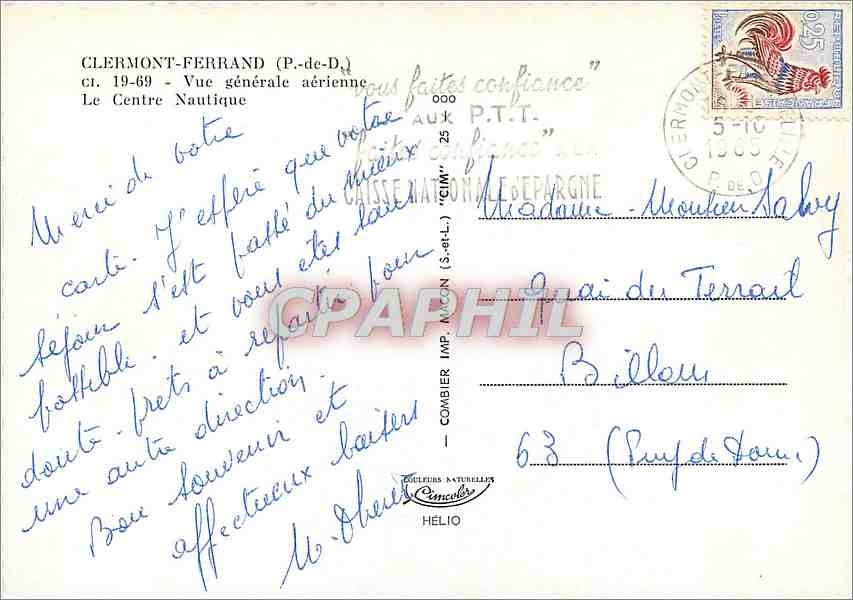 CLERMONT-FERRAND (P.-de-D.)
CI. 19-69 - Vue générale aérienne
Le Centre Nautique
"vous faites confiance"
AUX P.T.T.
faites confiance" À LA
CAISSE NATIONALE D'EPARGNE
REPUBLIQUE FRANÇAISE
0,25
POSTES
CLERMONT
5-10
1965
P. DE D.
Merci de votre
carte. J'espère que votre
séjour s'est passé du mieux
possible. et vous etes sans
doute prets à repartir pour
une autre direction.
Bon souvenir et
affectueux baisers
Madame Moulien Salvy
Quai du Terrail
Billom
63 (Puy de Dome)
— COMBIER IMP. MACON (S.-et-L.) "CIM" 25 K 000
CPAPHIL
COULEURS NATURELLES
Cimcolor
HÉLIO